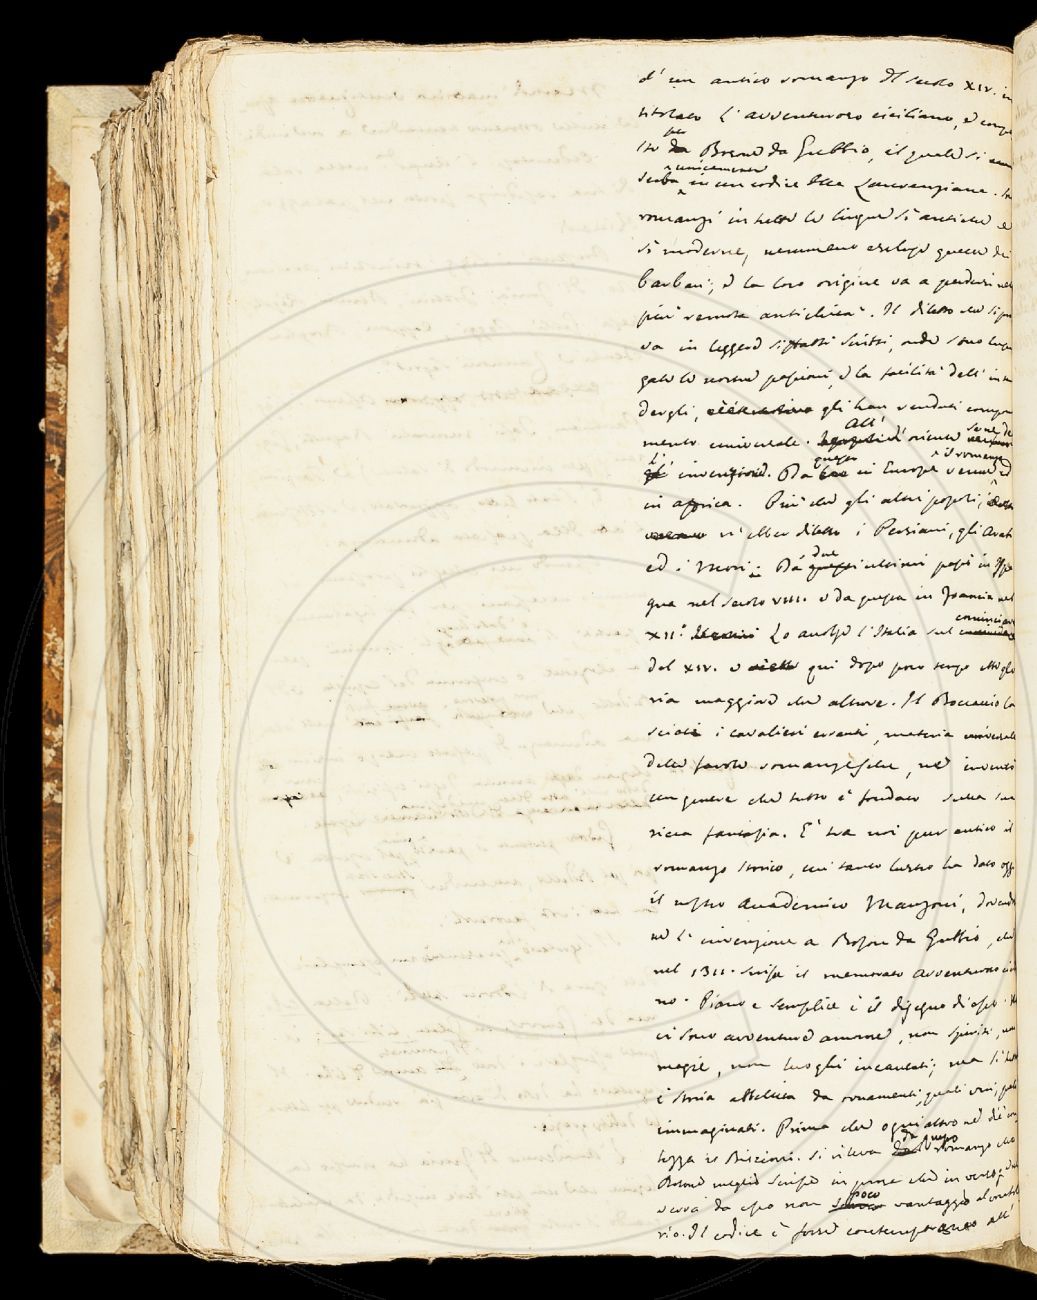 d'un antico romanzo del secolo XIV. in
titolato L'avventuroso ciciliano, e compo
sto per Bosone da Gubbio, il quale si
serba unicamente in un codice della Laurenziana.
romanzi in tutte le lingue sì antiche e
sì moderne, nemmeno escluse quelle dei
barbari; e la loro origine va a perdersi nella
più remota antichità. Il diletto che si pro
va in leggere siffatti scritti, onde sono lusin
gate le nostre passioni, e la facilità dell'inten
dergli, gli han renduti comune
mente universale. All'oriente se ne de
l'invenzione. Da questo in Europa venne il romanzo ed
in affrica. Più che gli altri popoli,
n'ebber diletto i Persiani, gli Arabi
ed i Mori: Da due ultimi passò in Ispa
gna nel secolo VIII. e da questa in Francia nel
XII.° Lo accolse l'Italia sul cominciare
del XIV. e qui dopo poco tempo ottò glo
ria maggiore che altrove. Il Boccaccio la
sciati i cavalieri erranti, materia universale
delle favole romanzesche, ne inventò
un genere che tutto è fondato sulla
fantasia. E' tra noi pur antico il
romanzo storico, cui tanto lustro ha dato oggi
il nostro Accademico Manzoni, dovendo
ne l'invenzione a Bosone da Gubbio, che
nel 1311. scrisse il memorato Avventuroso cicilia
no. Piano e semplice è il disegno di esso.
ci sono avventure amorose, non spiriti, non
magie, non luoghi incantati; ma si
è storia abbellita da ornamenti, quali veri, quali
immaginati. Prima che ogni altro ne diè con
tezza il Biscioni. Si rileva da questo romanzo che
Bosone meglio scrisse in prosa che in verso,
verrà da esso non poco vantaggio al vocabola
rio. Il codice è forse contemporaneo all'